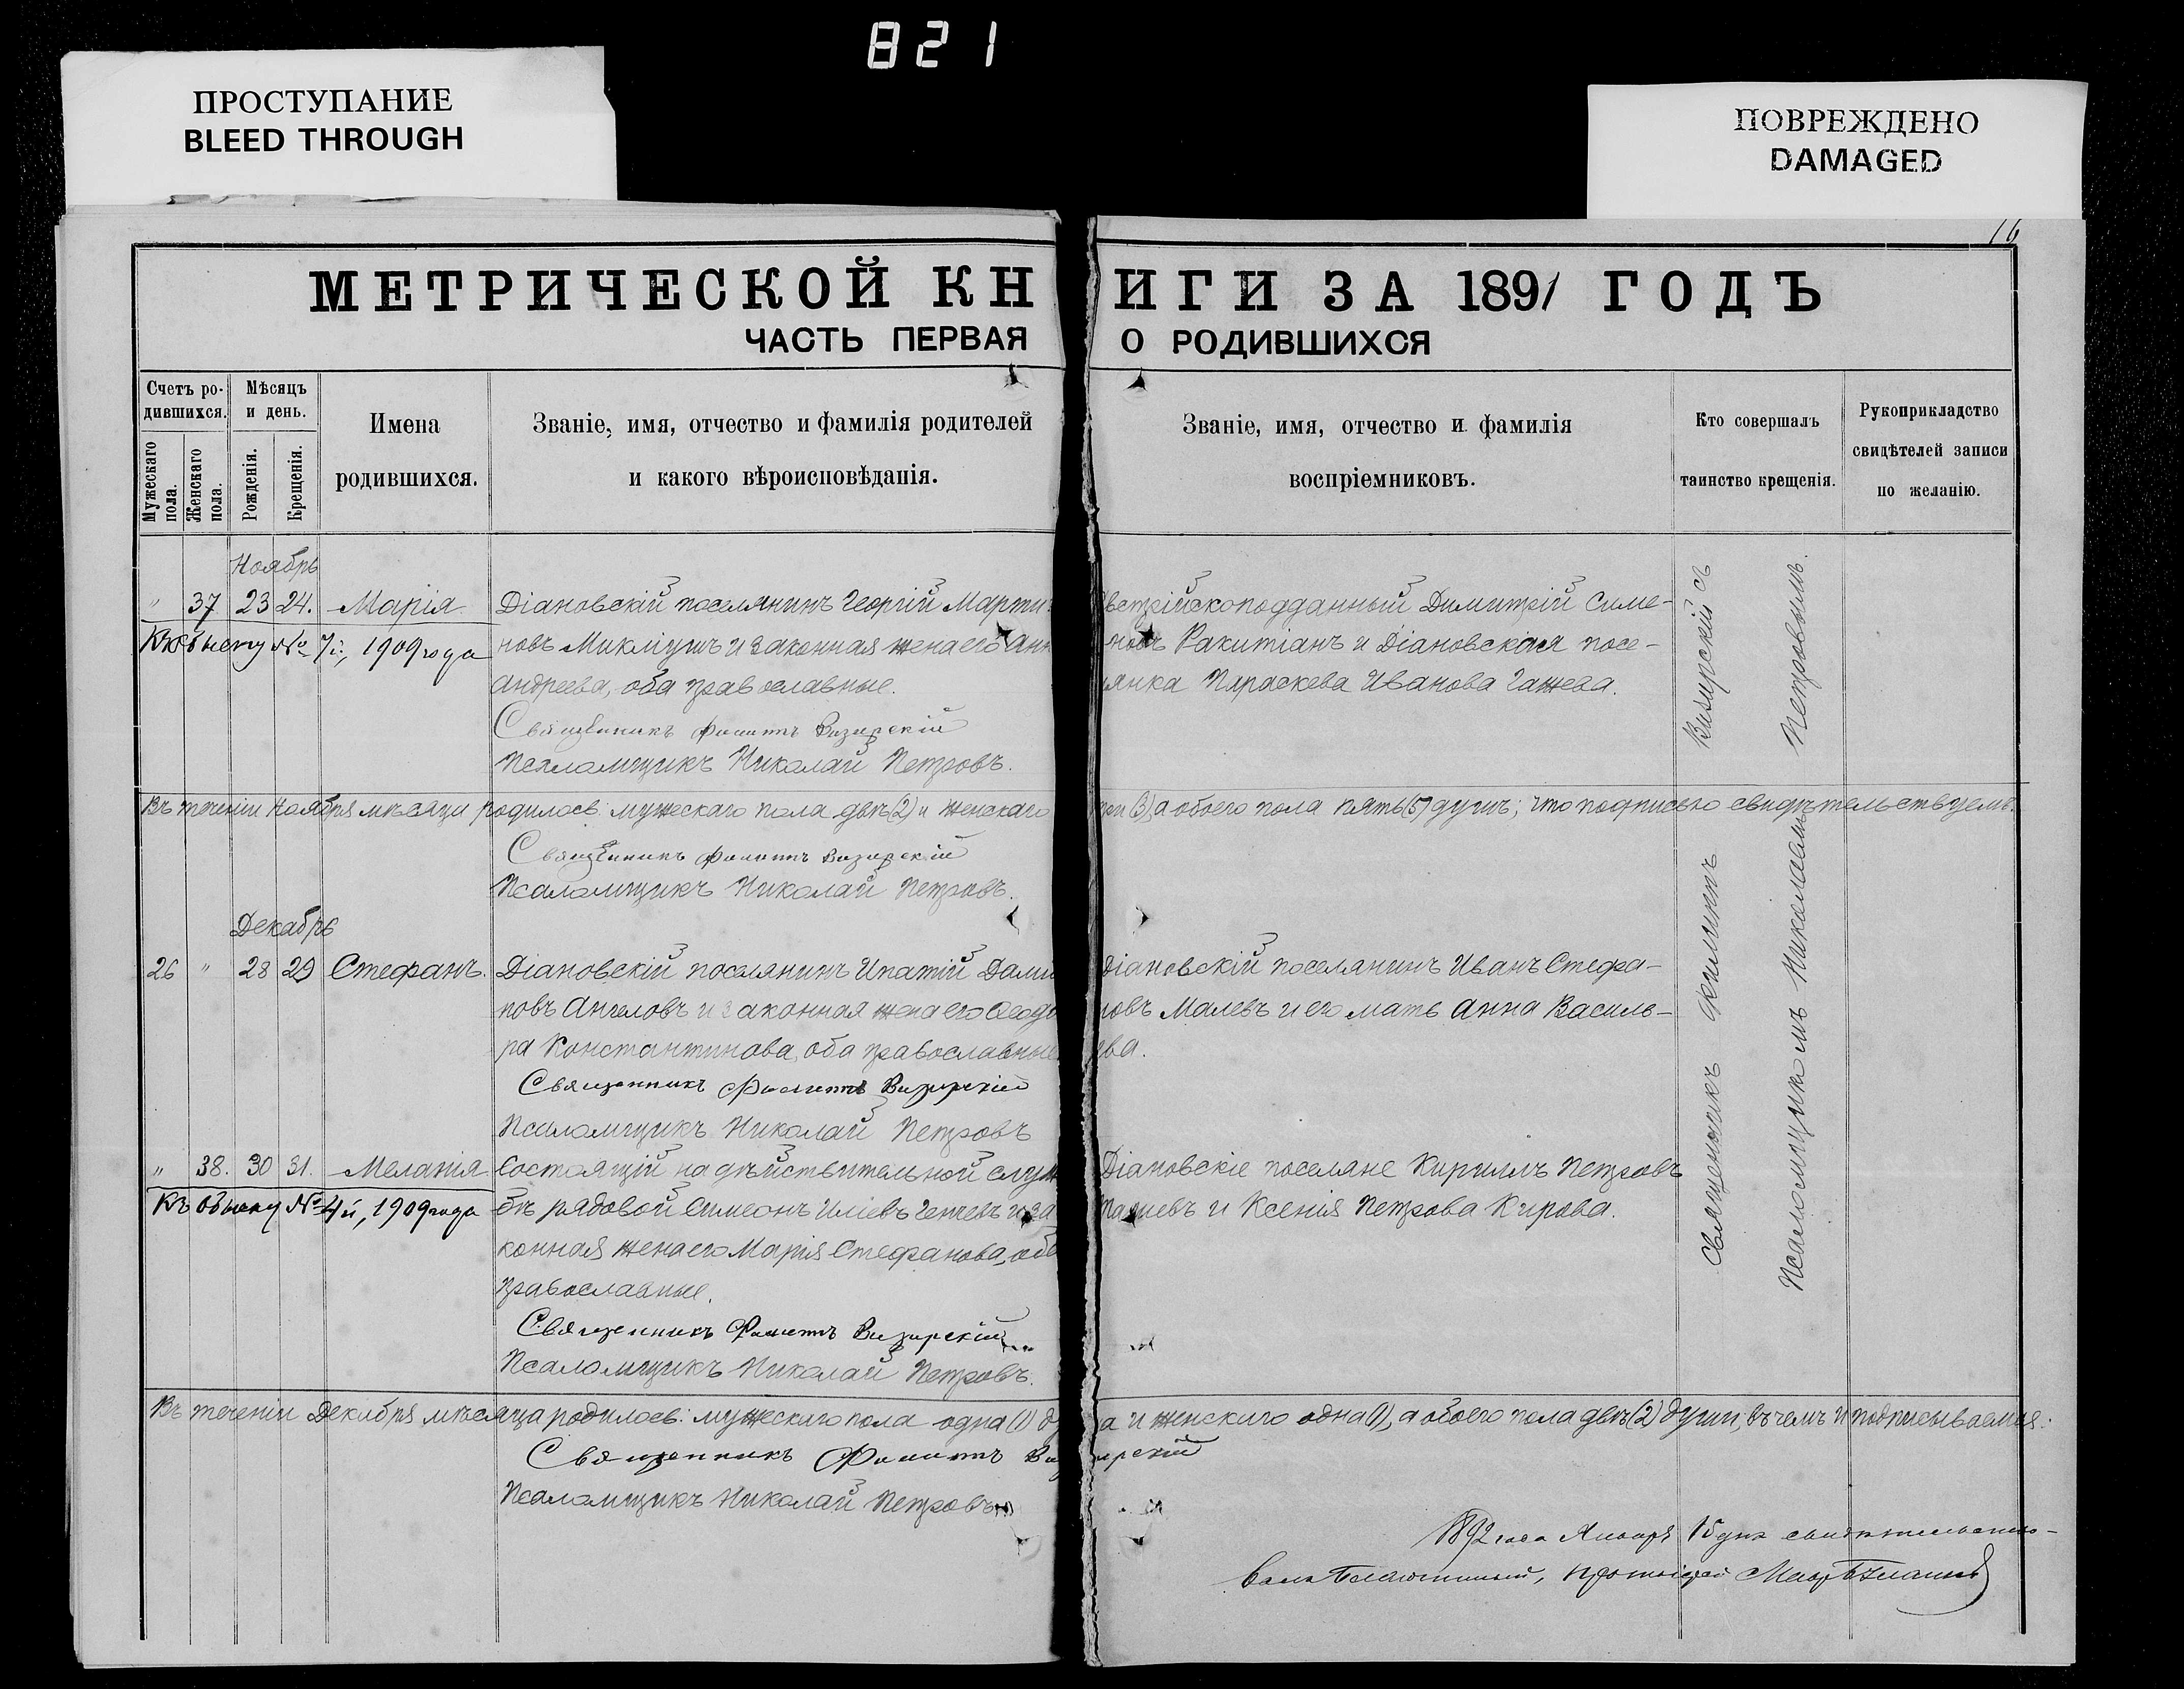 821
ПРОСТУПАНИЕ
BLEED THROUGH
ПОВРЕЖДЕНО
DAMAGED
16
МЕТРИЧЕСКОЙ КНИГИ ЗА 1891 ГОДЪ
ЧАСТЬ ПЕРВАЯ О РОДИВШИХСЯ
Счетъ ро-
дившихся.
Мужескаго пола.
Женскаго пола.
Мѣсяцъ
и день.
Рожденія.
Крещенія.
Имена
родившихся.
Званіе, имя, отчество и фамилія родителей
и какого вѣроисповѣданія.
Званіе, имя, отчество и фамилія
воспріемниковъ.
Кто совершалъ
таинство крещенія.
Рукоприкладство
свидѣтелей записи
по желанію.
Ноябрь
" 37 23 24. Марія
Къ обыску № 7й, 1909 года
Діановскій поселянинъ Георгій Марти
новъ Миклеушъ и законная жена его Анн
Андреева, оба православные.
Священникъ Филиппъ Визирскій
Псаломщикъ Николай Петровъ.
встрійскоподданный Димитрій Симе-
новъ Ракитіанъ и Діановская посе-
янка Параскева Иванова Гажева.
Въ теченіи Ноября мѣсяца родилось: мужескаго пола двѣ (2) и женскаго три (3), а обоего пола пять (5) душъ; что подписью свидѣтельствуемъ.
Священникъ Филиппъ Визирскій
Псаломщикъ Николай Петровъ.
Декабрь
26 " 28 29 Стефанъ.
Діановскій поселянинъ Ипатій Дами
новъ Ангеловъ и законная жена его Ѳеодо
ра Константинова, оба православные
Священникъ Филиппъ Визирскій
Псаломщикъ Николай Петровъ
Діановскій поселянинъ Иванъ Стефа-
новъ Малевъ и его мать Анна Василь-
ева.
" 38. 30 31. Меланія
Къ обыску № 4й, 1909 года
Состоящій на дѣйствительной служ
бѣ рядовой Симеонъ Иліевъ Генчевъ и за
конная жена его Марія Стефанова, оба
православные.
Священникъ Филиппъ Визирскій
Псаломщикъ Николай Петровъ.
Діановскіе поселяне Кириллъ Петровъ
и Ксенія Петрова Кирова.
Священникъ Филиппъ Визирскій съ
Псаломщикомъ Николаемъ Петровымъ.
Въ теченіи Декабря мѣсяца родилось: мужескаго пола одна (1) душа и женскаго одна (1), а обоего пола двѣ (2) души, въ чемъ и подписываемся:
Священникъ Филиппъ Визирскій
Псаломщикъ Николай Петровъ
1892 года Января 15 дня свидѣтельство-
валъ Благочинный, Протоіерей